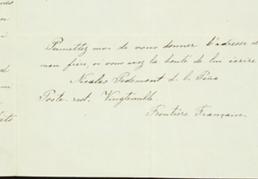 Permettez moi de vous donner l'adresse de
mon frère, si vous avez la bonté de lui écrire
Nicolas Pedemont d. l.
Poste rest. Vingtimille
Frontière Française.